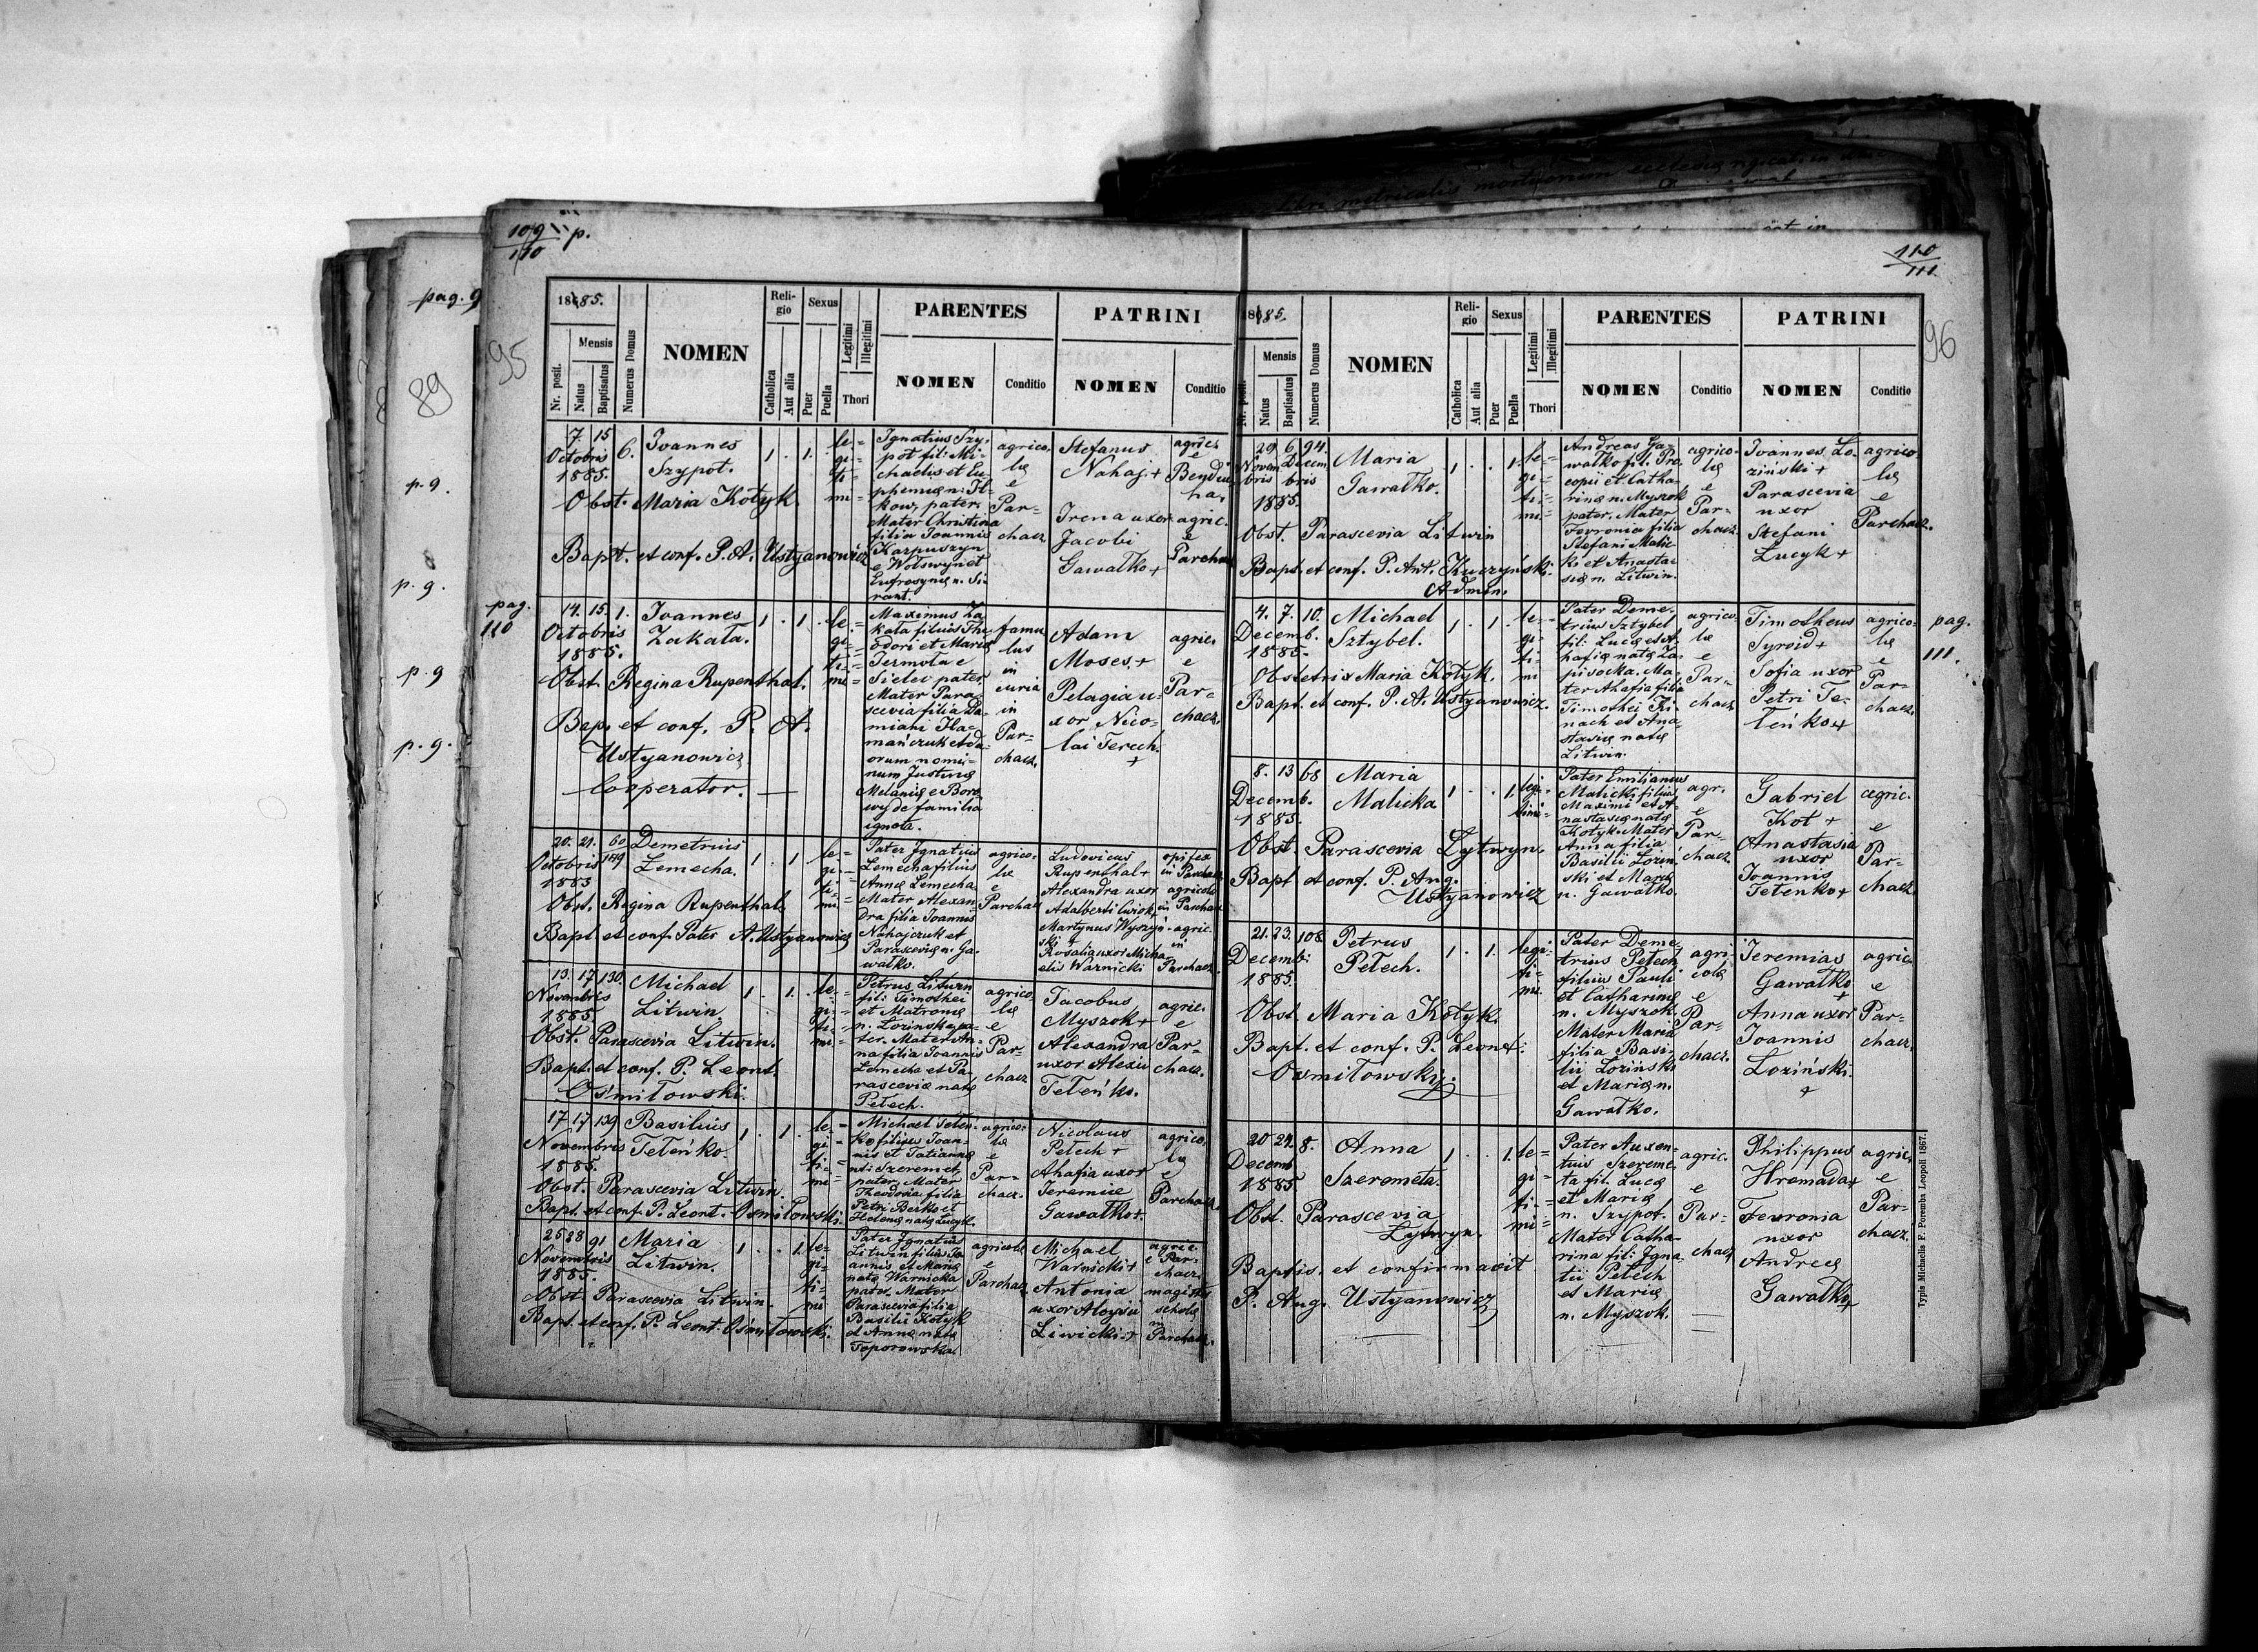 109 p.
110
pag. 9
95
89
p. 9.
p. 9.
pag.
110
p. 9
p. 9.
1885.
Nr. posit.
Mensis
Natus
Baptisatus
Numerus Domus
NOMEN
Reli-
gio
Catholica
Aut alia
Sexus
Puer
Puella
Legitimi
Illegitimi
Thori
PARENTES
NOMEN
Conditio
PATRINI
NOMEN
Conditio
7. 15
Octobris
1885.
6.
Ioannes
Szypot.
1 . 1 .
le=
gi=
ti=
mi=
Ignatius Szy-
pot fil: Mi-
chaelis et Eu-
phemię n: Il-
kow, pater.
Mater Christina
filia Joannis
Karpuszyn
e Wolswyn et
Eufrosynię n. Si-
rant.
agrico-
lę
e
Par=
chacz
Stefanus
Nahaj +
Irena uxor
Jacobi
Gawałko +
agric.
e
Bendiu-
ha.
agric.
e
Parchacz
Obst. Maria Kotyk
Bapt. et conf. P. A. Ustyanowicz
14. 15. 1.
Octobris
1885.
Ioannes
Zakała.
1 . 1 .
le=
gi=
ti=
mi=
Maximus Za-
kała filius The-
odori et Marię
Jermoła e
Sielec pater
Mater Para-
scevia filia Da-
miani Ha-
mańczuk et du-
orum nomi-
num Justinę
Melanię e Boro-
wy de familia
ignota.
famu
lus
in
curia
in
Par-
chacz.
Adam
Moses. +
Pelagia u-
xor Nico-
lai Terech.
+
agric.
e
Par-
chacz.
Obst. Regina Rupenthal.
Bap. et conf. P. A.
Ustyanowicz
Cooperator.
20. 21. 60
149
Octobris
1885
Demetrius
Lemecha.
1 . 1
le=
gi=
ti=
mi=
Pater Ignatius
Lemecha filius
Annę Lemecha
Mater Alexan-
dra filia Joannis
Nahajczuk et
Parascevię n. Ga-
wałko.
agrico-
lę
e
Parchacz
Ludovicus
Rupenthal +
Alexandra uxor
Adalberti Cwiok +
Martynus Wyszyń-
ski +
Rosalia uxor Micha-
elis Warnicki
opifex
in Parchacz
agricola
in Parchacz
agric.
in
Parchacz.
Obst. Regina Rupenthal
Bapt. et conf. Pater A. Ustyanowicz
13. 17. 130.
Novembris
1885.
Michael
Litwin.
1 . 1.
le=
gi=
ti=
mi=
Petrus Litwin
fil: Timothei
et Matronę
n. Łozinska, pa-
ter. Mater An-
na filia Joannis
Lemecha et Pa-
rascevię natę
Petech.
agrico-
lę
e
Par-
chacz
Jacobus
Myszok +
Alexandra
uxor Alexii
Teteńko.
agric.
e
Par-
chacz.
Obst. Parascevia Litwin.
Bapt. et conf. P. Leont.
Ośmiłowski.
17 17 139
Novembris
1885.
Basilius
Teteńko
1 . 1 .
le=
gi=
ti=
mi=
Michael Teten-
ko filius Joan-
nis et Tatiannę
n: Szeremet
pater. Mater
Theodosia filia
Petri Berko et
Helenę natę Lucyk.
agrico-
lę
e
Par-
chacz.
Nicolaus
Petech +
Ahafia uxor
Jeremiæ
Gawałko +.
agrico-
lę
e
Parchacz
Obst. Parascevia Litwin.
Bapt. et conf. P. Leont. Osmiłowski.
25 28 91
Novembris
1885.
Maria
Litwin.
1 . . 1.
le=
gi=
ti=
mi
Pater Ignatius
Litwin filius Jo-
annis et Marię
natę Warnicka
pater. Mater
Parascevia filia
Basilii Kotyk
et Annę natę
Toporowska.
agricolę
e
Parchacz
Michael
Warnicki +
Antonia
uxor Aloysii
Liwicki +
agric.
e Par-
chacz.
magistri
scholę
in
Parchacz.
Obst. Parascevia Litwin
Bapt. et conf. P. Leont. Ośmiłowski.
110
111.
96
1885.
Nr. posit.
Mensis
Natus
Baptisatus
Numerus Domus
NOMEN
Reli-
gio
Catholica
Aut alia
Sexus
Puer
Puella
Legitimi
Illegitimi
Thori
PARENTES
NOMEN
Conditio
PATRINI
NOMEN
Conditio
29 6. 94.
Novem Decem
bris bris
1885.
Maria
Gawałko.
1 . . 1.
le=
gi=
ti=
mi=
Andreas Ga-
wałko fil. Pro-
copii et Catha-
rinę n. Myszok
pater. Mater
Fevronia filia
Stefani Malic-
ki et Anasta-
się n. Litwin.
agrico-
lę
e
Par-
chacz.
Joannes Ło-
ziński +
Parascevia
uxor
Stefani
Lucyk +
agrico-
lę
e
Parchacz.
Obst. Parascevia Litwin
Bapt. et conf. P. Ant. Kuczyński.
Admin.
4. 7. 10.
Decemb.
1885.
Michael
Sztybel.
1 . 1.
le-
gi-
ti-
mi
Pater Deme-
trius Sztybel
fil: Lucę et A-
hafię natę Za-
pisocka. Ma-
ter Ahafia filia
Timothei Ki-
nach et Ana-
stasię natę
Litwin.
agrico-
lę
e
Par-
chacz
Timotheus
Syroid +
Sofia uxor
Petri Te-
teńko +
agrico-
lę
e
Par-
chacz.
pag.
111.
Obstetrix Maria Kotyk.
Bapt. et conf. P. A. Ustyanowicz.
8. 13 68
Decemb.
1885.
Maria
Malicka
1 . . 1.
legi-
timi=
Pater Emilianus
Malicki filius
Maximi et A-
nastasię natę
Kotyk. Mater
Anna filia
Basilii Łozin-
ski et Marię
n. Gawałko.
agr.
e
Par-
chacz.
Gabriel
Kot +
Anastasia
uxor
Joannis
Tetenko +
agric.
e
Par-
chacz
Obst. Parascevia Lytwyn.
Bapt et conf. P. Aug.
Ustyanowicz
21. 23. 108.
Decemb:
1885.
Petrus
Petech.
1 . 1.
legi-
ti=
mi.
Pater Deme-
trius Petech
filius Pauli
et Catharinę
n. Myszok.
Mater Maria
filia Basi-
lii Łoziński
et Marię n.
Gawałko.
agri-
colę
e
Par-
chacz.
Jeremias
Gawałko
+
Anna uxor
Joannis
Łoziński.
+
agric.
e
Par-
chacz.
Obst. Maria Kotyk.
Bapt. et conf. P. Leont.
Osmiłowski.
20 24. 8.
Decemb
1885.
Anna
Szeremeta.
1 . . 1.
le=
gi=
ti=
mi=
Pater Auxen-
tius Szereme-
ta fil. Lucę
et Marię
n. Szypot.
Mater Catha-
rina fil: Igna-
tii Petech
et Marię
n. Myszok.
agric.
e
Par-
chacz
Philippus
Hromada +
Fevronia
uxor
Andreę
Gawałko
+
agric.
e
Par-
chacz.
Obst. Parascevia
Lytwyn.
Baptis. et confirmavit
P. Aug. Ustyanowicz
Typis Michaelis F. Poremba Leopoli 1867.